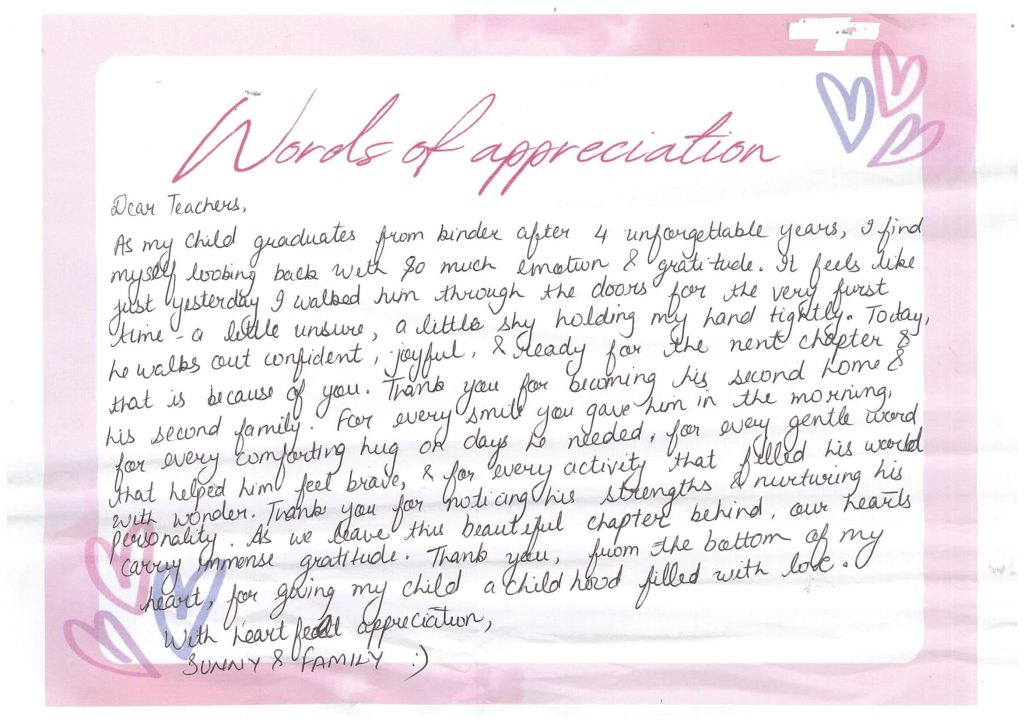 Words of appreciation
Dear Teachers,
As my child graduates from kinder after 4 unforgettable years, I find
myself looking back with so much emotion & gratitude. It feels like
just yesterday I walked him through the doors for the very first
time - a little unsure, a little shy holding my hand tightly. Today,
he walks out confident, joyful, & ready for the next chapter &
that is because of you. Thank you for becoming his second home &
his second family. For every smile you gave him in the morning,
for every comforting hug on days he needed, for every gentle word
that helped him feel brave, & for every activity that filled his world
with wonder. Thank you for noticing his strengths & nurturing his
personality. As we leave this beautiful chapter behind, our hearts
carry immense gratitude. Thank you, from the bottom of my
heart, for giving my child a child hood filled with love.
With heart felt appreciation,
SUNNY & FAMILY :)